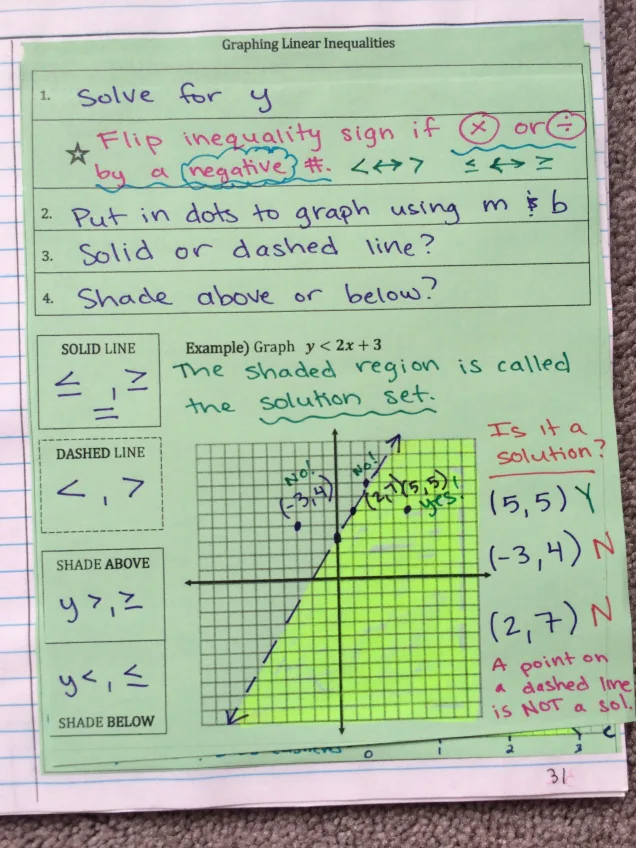 Graphing Linear Inequalities
1. Solve for y
☆ Flip inequality sign if ⊗ or ÷
by a negative #. < ↔ > ≤ ↔ ≥
2. Put in dots to graph using m & b
3. Solid or dashed line?
4. Shade above or below?
SOLID LINE
≤ , ≥
=
DASHED LINE
< , >
SHADE ABOVE
y >, ≥
y <, ≤
SHADE BELOW
Example) Graph y < 2x + 3
The shaded region is called
the solution set.
No!
(-3,4)
No!
(2,7)
(5,5)!
yes!
Is it a
solution?
(5,5) Y
(-3,4) N
(2,7) N
A point on
a dashed line
is NOT a sol.
0 1 2 3
31